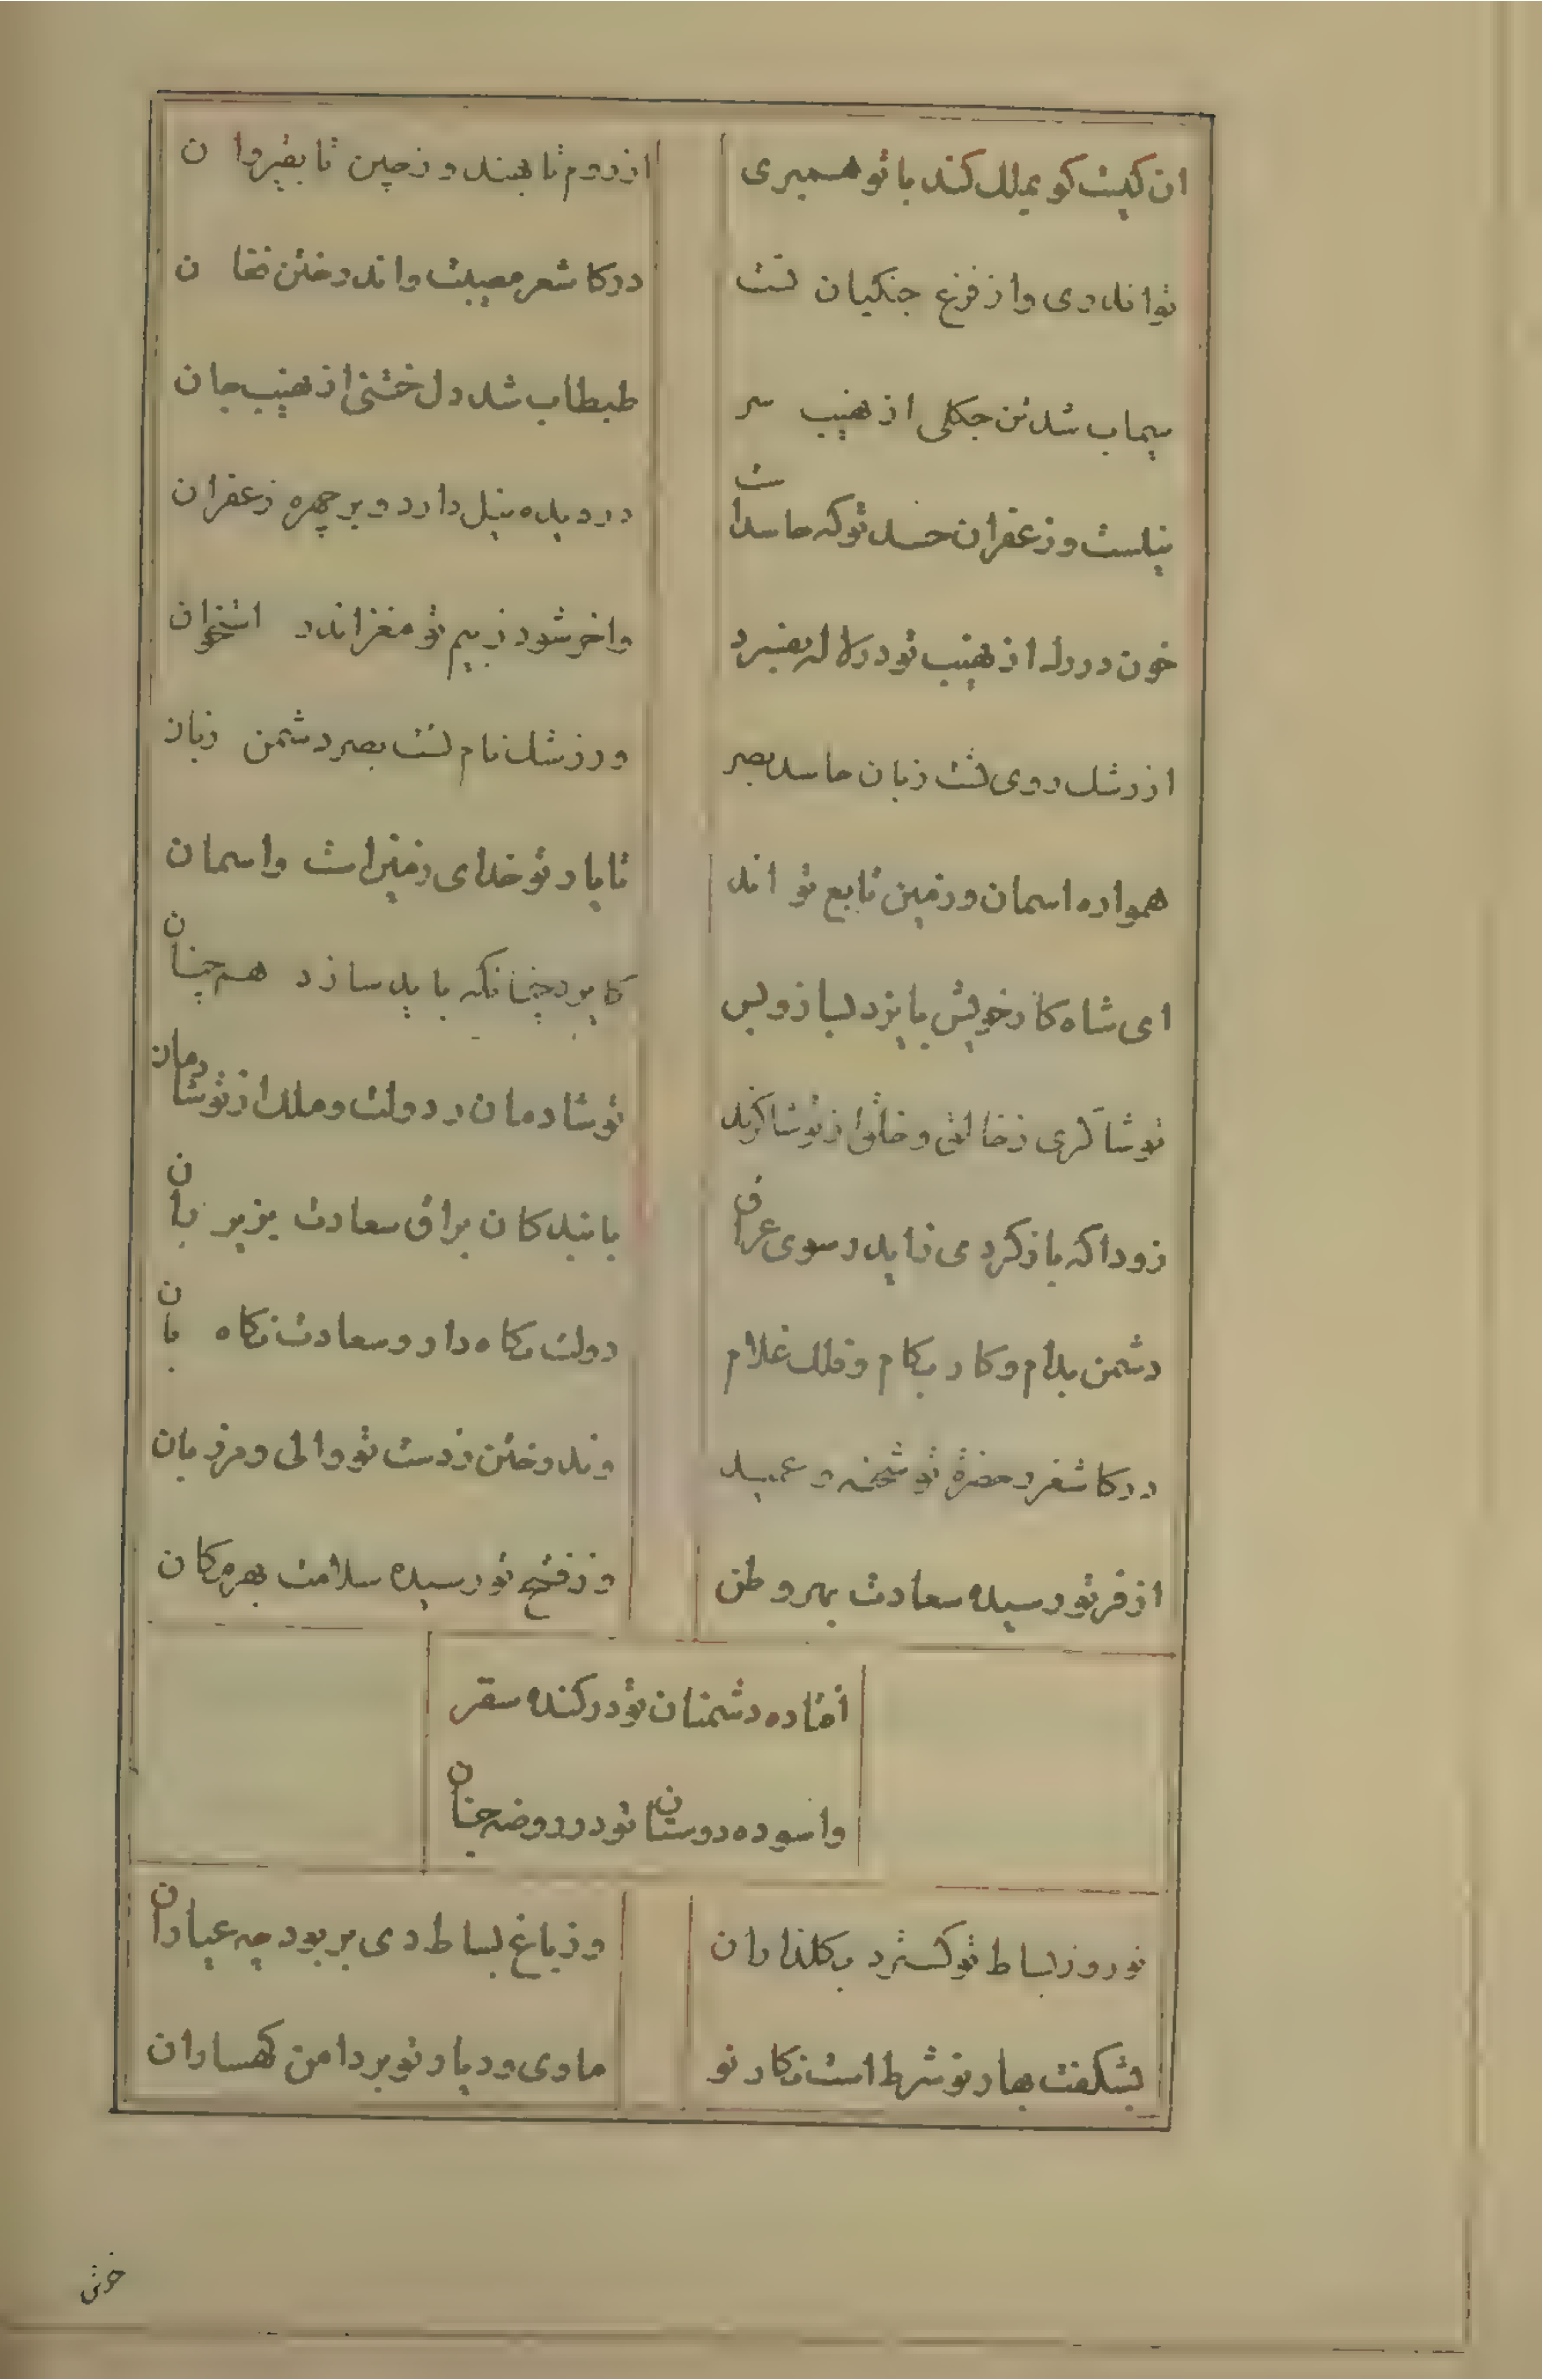 ان کیست کو بملک کند با تو همبری
از روم تا بهند و ز چین تا بقیروان
تو اندری و از فزع جنکیان تست
در کاشغر مصیبت و اندر ختن فغان
سیماب شد تن جکلی از نهیب سر
طبطاب شد دل ختنی از نهیب جان
نیلست و زعفران حسد تو که حاسدات
در دیده نیل دارد و بر چهره زعفران
خون در رک از نهیب تو در کالبد بفسرد
واخر شود ز بیم تو مغز اندر استخوان
از رشک روی تست زبان حاسد بصر
و ز رشک نام تست بصر دشمن زبان
همواره اسمان و زمین تابع تو اند
تا یار تو خدای زمین است و اسمان
ای شاه کار خویش بایزد سپار و بس
کایزد چنانکه باید سازد هم چنان
تو شاکری ز خالق و خلق از تو شاکرند
تو شادمان ز دولت و ملک از تو شادمان
زودا که باز کردی ناید سوی عراق
با بندکان براق سعادت بزیر ران
دشمن بدام و کار بکام و فلک غلام
دولت نکاه دار و سعادت نکاه بان
در کاشغر ز حضرة تو شحنه و عمید
وندر ختن ز دست تو والی و مرزبان
از فر تو رسیده سعادت بهر وطن
وز فتح تو رسیده سلامت بهر مکان
افتاده دشمنان تو در کنده سقر
واسوده دوستان تو در روضه جنان
نوروز بساط نو کسترد بکلذاران
وز باغ بساط دی بربود چه عیاران
بشکفت بهار نو شرط است نکار نو
ما و می و دیدار تو بر دامن کهساران
خوش